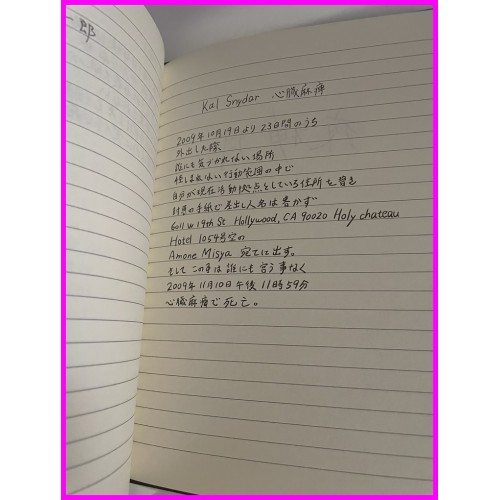 一郎
Kal Snydar 心臓麻痺
2009年10月19日より23日間のうち
外出した際
誰にも気づかれない場所
怪しまれない行動範囲の中で
自分が現在活動拠点としている住所を書き
封書の手紙で差出人名は書かず
6011 w 19th St Hollywood, CA 90020 Holy chateau
Hotel 1054号室の
Amone Misya 宛てに出す。
そして この事は誰にも言う事なく
2009年11月10日午後11時59分
心臓麻痺で死亡。